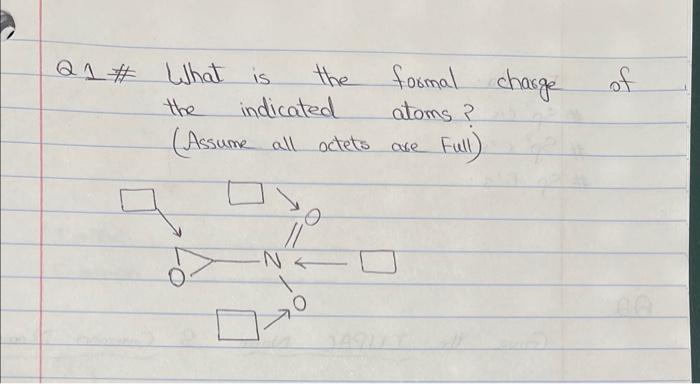 Q1# What is the formal charge of
the indicated atoms?
(Assume all octets are Full)
O
N
O
O